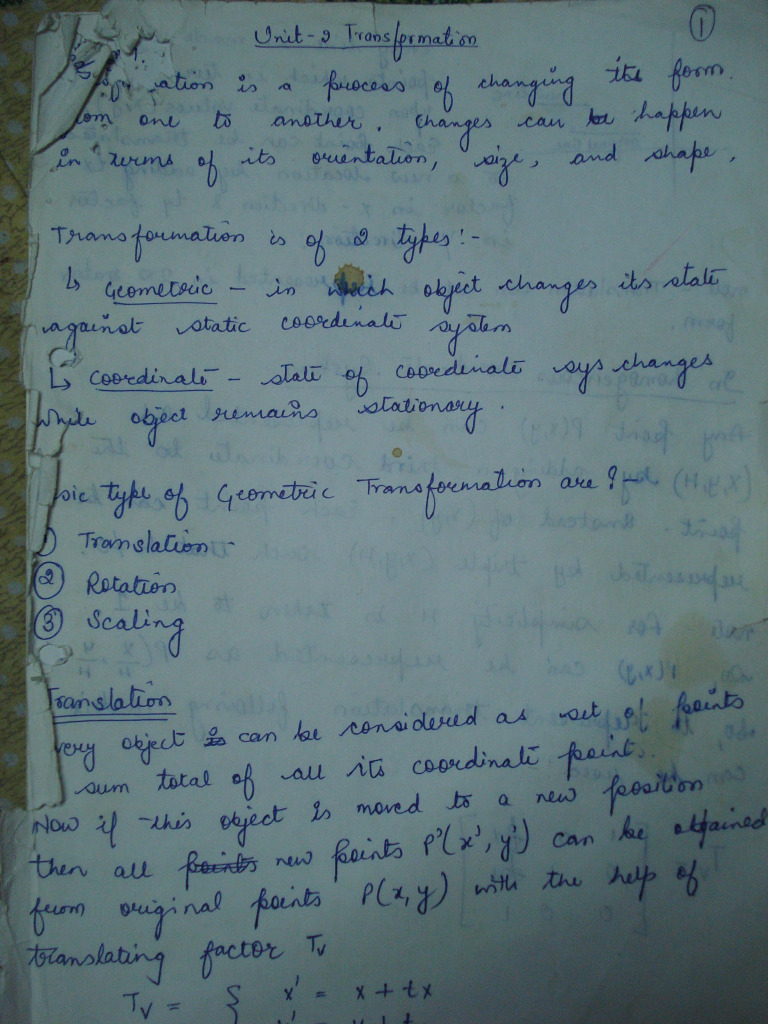 ①
Unit-2 Transformation
ation is a process of changing its form
om one to another. Changes can be happen
in terms of its orientation, size, and shape.
Transformation is of 2 types:-
↳ Geometric - in which object changes its state
against static coordinate system
↳ coordinate - state of coordinate sys changes
while object remains stationary.
sic type of Geometric Transformation are:-
① Translation -
② Rotation
③ Scaling
Translation
very object is can be considered as set of points
sum total of all its coordinate point.
Now if this object is moved to a new position
then all points new points P'(x', y') can be obtained
from original points P(x, y) with the help of
translating factor Tv
Tv = { x' = x + tx